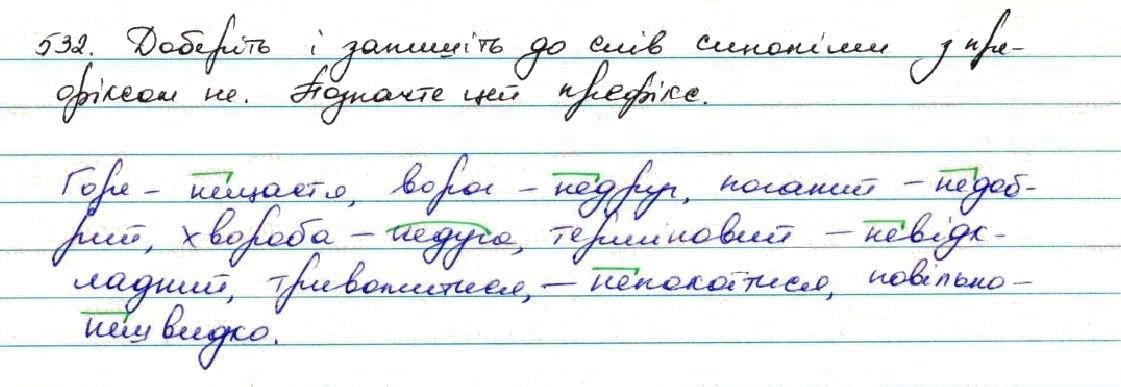 532. Доберіть і запишіть до слів синоніми з пре-
фіксом не. Позначте цей префікс.
Горе - нещастя, ворог - недруг, поганий - недоб-
рий, хвороба - недуга, терміновий - невідк-
ладний, тривожитися, - непокоїтися, повільно -
нешвидко.